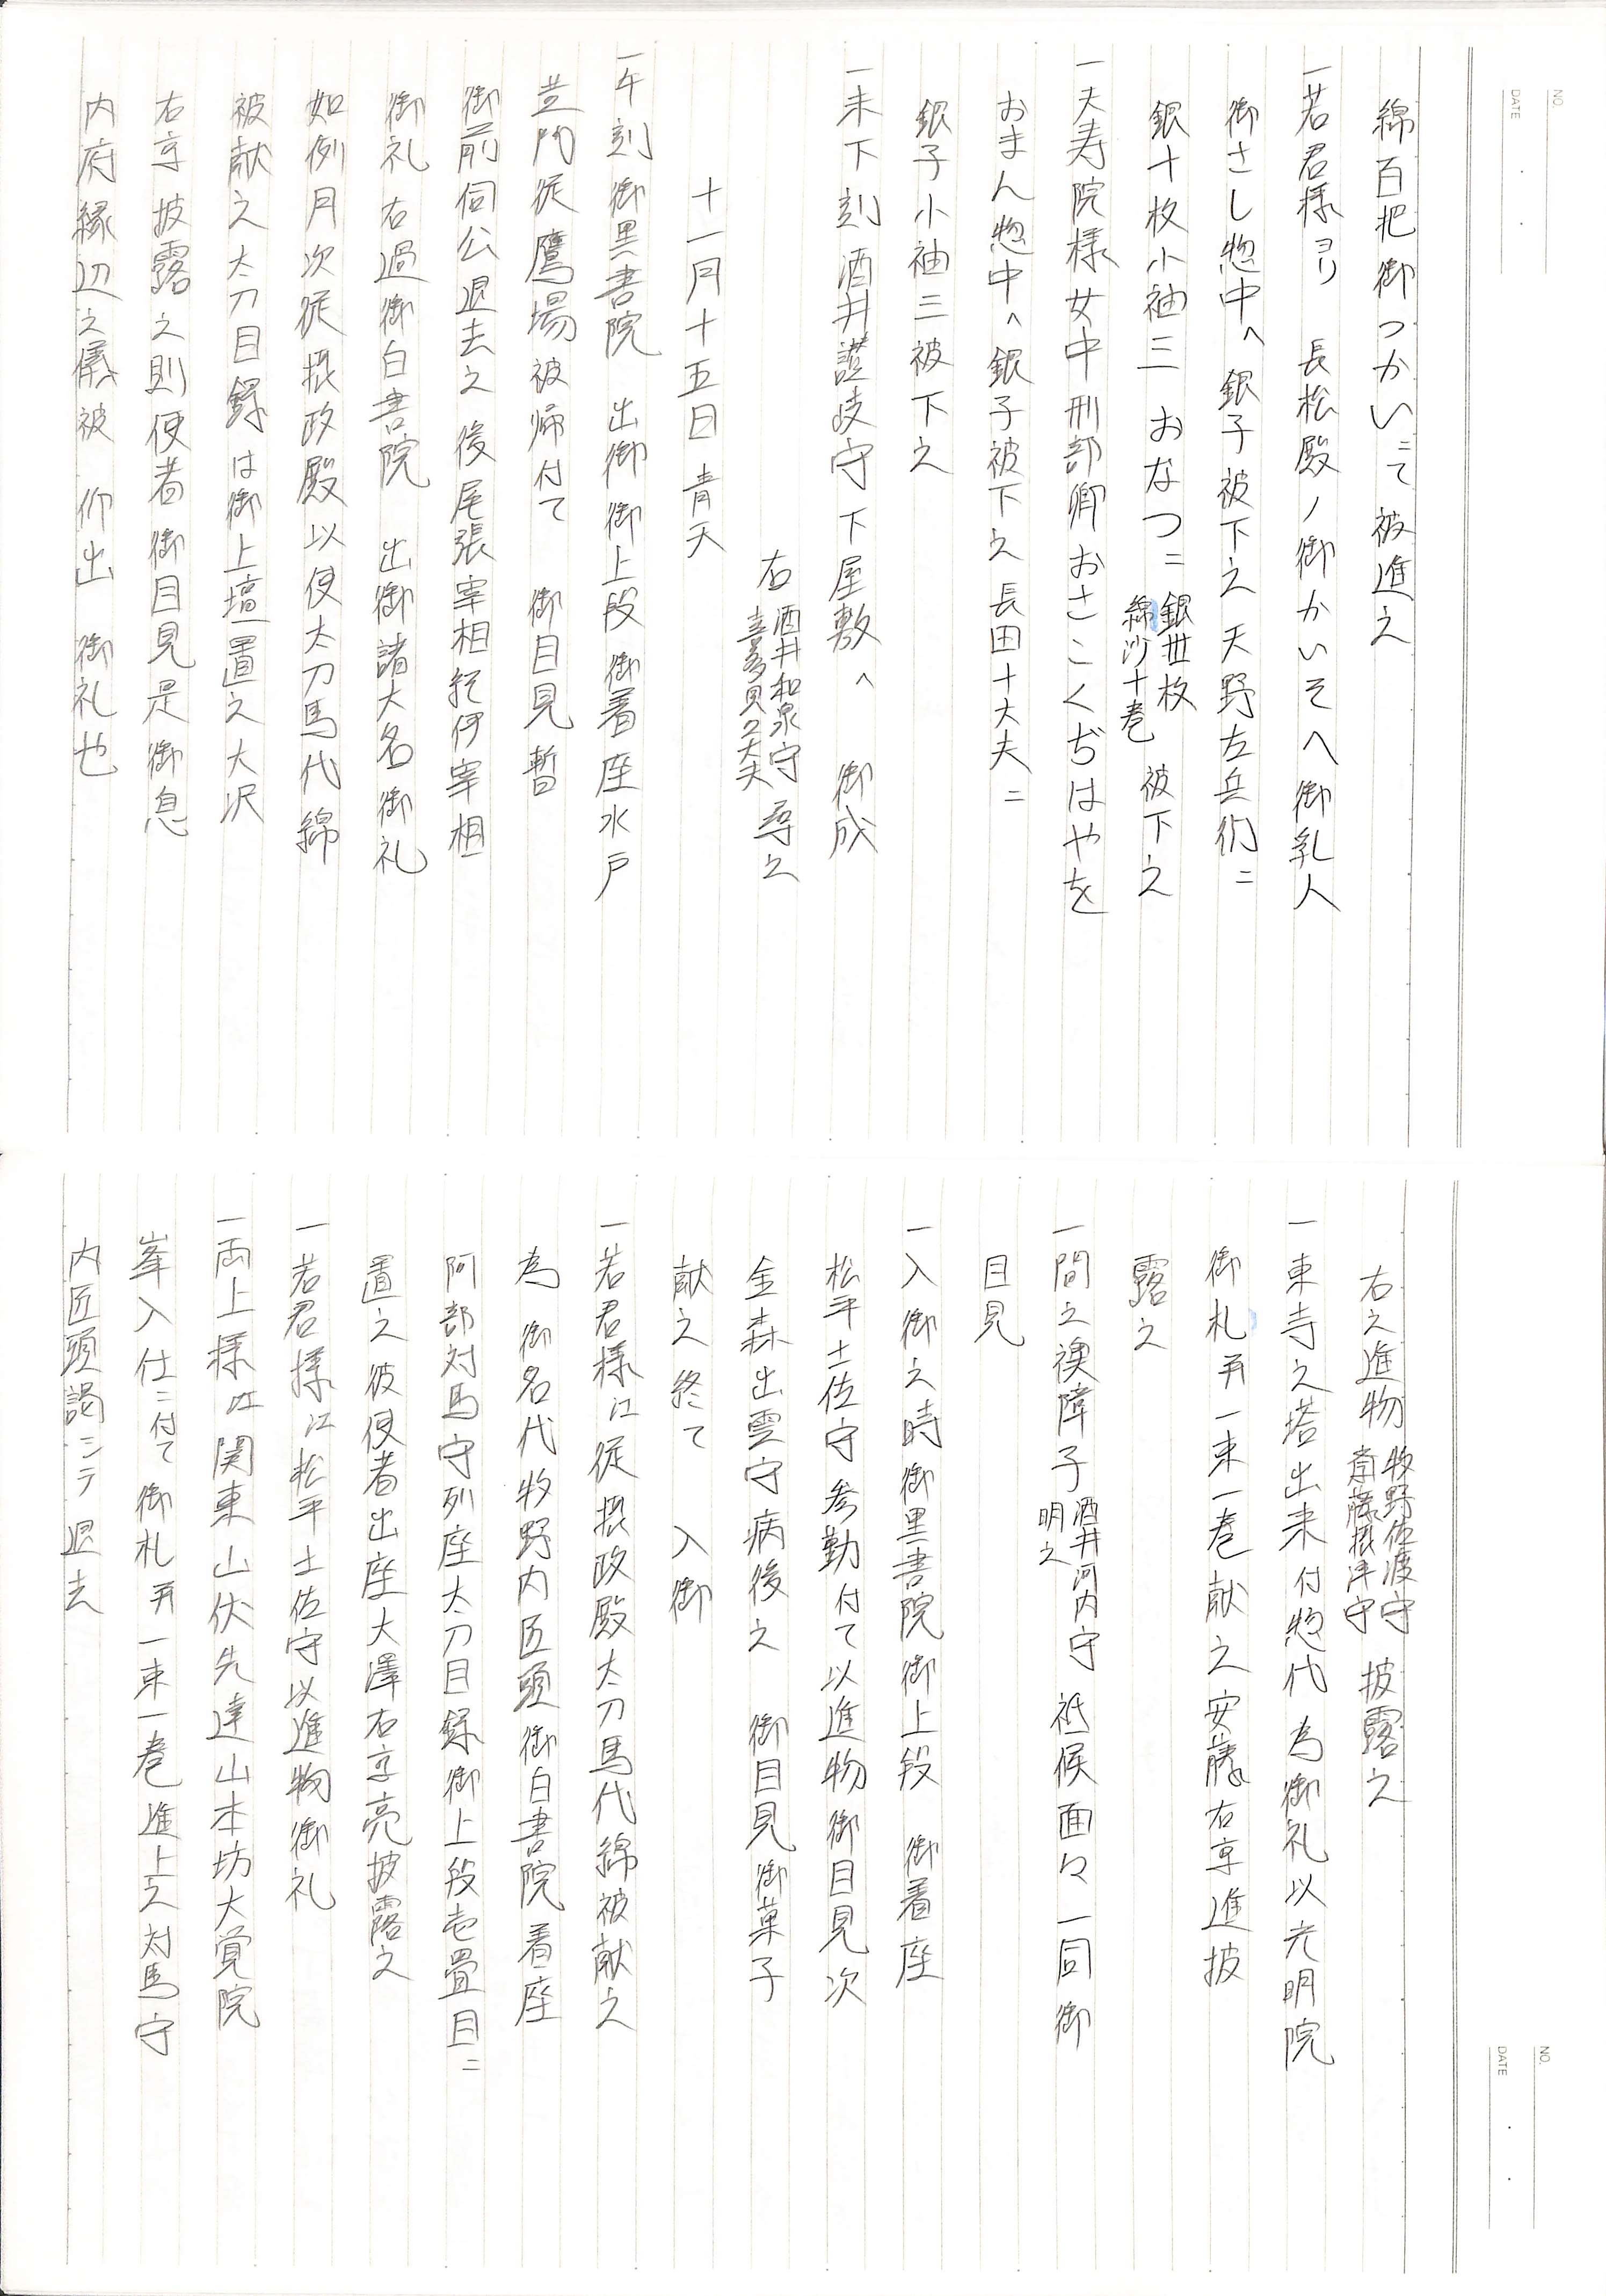 NO.
DATE
綿百把御つかいニて 被進之
一若君様ヨリ 長松殿ノ御かいそへ御乳人
御さし惣中へ 銀子被下之 天野左兵衛ニ
銀十枚小袖三 おなつニ 銀丗枚 綿沙十巻 被下之
一天寿院様女中刑部卿おさこくぢはやを
おまん惣中へ銀子被下之 長田十大夫ニ
銀子小袖三被下之
一未下刻 酒井讃岐守下屋敷へ 御成
右 酒井和泉守 喜多見久大夫 尋之
十一月十五日 青天
一午刻御黒書院 出御 御上段 御着座 水戸
黄門従鷹場被帰付て 御目見 暫
御前伺公退去之 後尾張宰相紀伊宰相
御礼 右過御白書院 出御諸大名御礼
如例月次従摂政殿以使太刀馬代綿
被献之 太刀目録は御上壇置之 大沢
右京 披露之 則使者御目見 是御息
内府縁辺之儀被 仰出 御礼也
右之進物 牧野佐渡守 斎藤摂津守 披露之
一東寺之塔出来付惣代 為御礼以光明院
御札并一束一巻献之 安藤右京進披
露之
一間之襖障子 酒井河内守 明之 祗候面々一同御
目見
一入御之時 御黒書院御上段 御着座
松平土佐守参勤付て以進物御目見 次
金森出雲守病後之 御目見 御菓子
献之終て 入御
一若君様江従摂政殿太刀馬代綿被献之
為 御名代牧野内匠頭御白書院着座
阿部対馬守列座太刀目録御上段壱畳目ニ
置之 彼使者出座大澤右京亮披露之
一若君様江松平土佐守以進物御礼
一両上様江関東山伏先達山本坊大覚院
峯入仕ニ付て 御札并一束一巻進上之 対馬守
内匠頭謁シテ退去
NO.
DATE